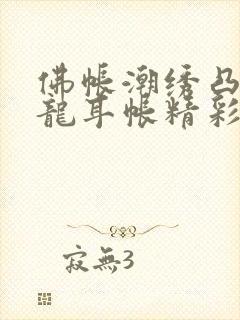 佛帳潮绣凸
龍耳帐精彩
寂無3